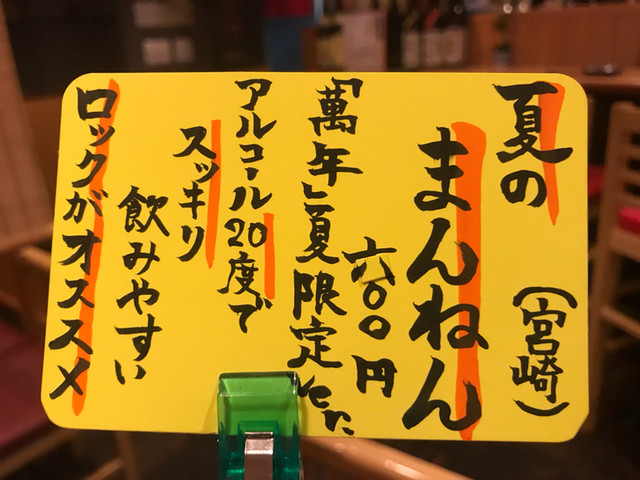 夏の
まんねん
(宮崎)
六〇〇円
「萬年」夏限定ver.
アルコール20度で
スッキリ
飲みやすい
ロックがオススメ